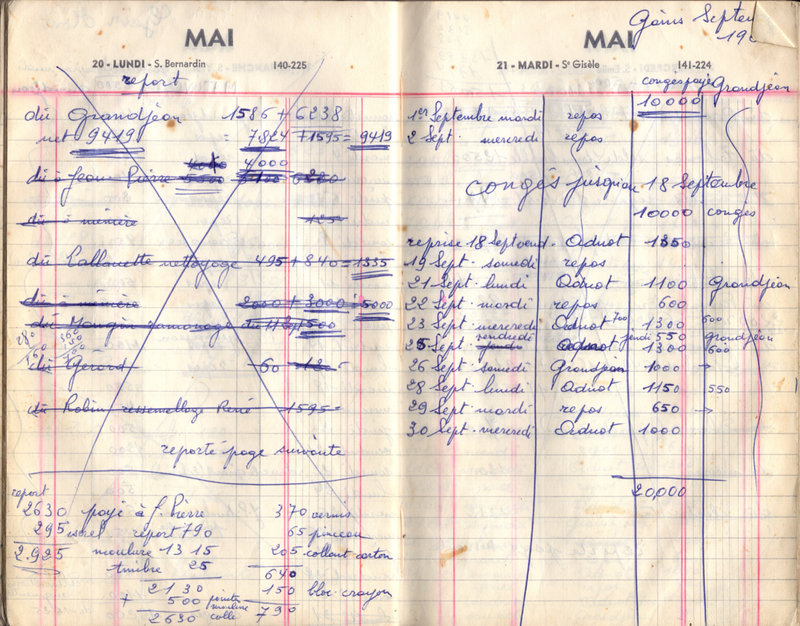 MAI
20 - LUNDI - S. Bernardin 140-225
report
dû Grandjean 1586 + 6238
net 9419 = 7824 + 1595 = 9419
4000
dû à Jean Pierre 5000
dû à mémère 125
dû Lallouette nettoyage 495 + 840 = 1335
dû à mémère 2000 + 3000 = 5000
dû Mougin ramonage 1500
dû Gérard 60
dû Robin ressemellage René 1595
reporté page suivante
report
2630 payé à J. Pierre 370 vernis
295 report 790 65 pinceau
2.925 moulure 13 15 205 collant carton
timbre 25 640
2130 150 bloc crayon
+ 500 pointes moulure colle 790
2630
Gains Septem
19
MAI
21 - MARDI - Ste Gisèle 141-224
congés payé Grandjean
10000
1er Septembre mardi repos
2 Sept. mercredi repos
congés jusqu'au 18 Septembre
10000 congés
reprise 18 Sept vend. Adnot 1350
19 Sept. samedi repos
21 Sept. lundi Adnot 1100 Grandjean
22 Sept. mardi repos 600
23 Sept. mercredi Adnot 700 1300 600
jeudi 550 Grandjean
25 Sept. vendredi Adnot 1300 600
26 Sept. samedi Grandjean 1000 →
28 Sept. lundi Adnot 1150 550
29 Sept. mardi repos 650 →
30 Sept. mercredi Adnot 1000
20,000